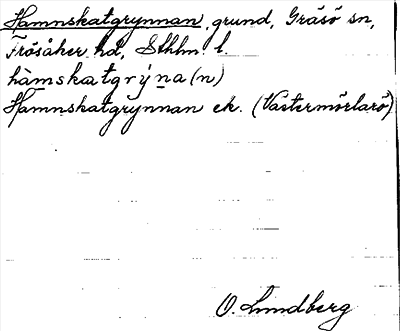 Hamnskatgrynnan, grund, Gräsö sn,
Frösåker hd, Sthlm l.
hàmskatgrýna(n)
Hamnskatgrynnan ek. (Västermörlarö)
O. Lundberg